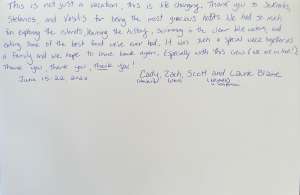 This is not just a vacation, this is life changing. Thank you to
Stelianos and for being the most gracious hosts. We had so much
fun exploring the islands, learning the history, swimming in the clear blue waters, and
eating some of the best food we've ever had. It was such a special week together as
a family and we hope to come back again. Especially with this crew (we're in love!)
Thank you thank you thank you!
June 15-22, 2022 Carly, Zach, Scott and Laurie Blaine